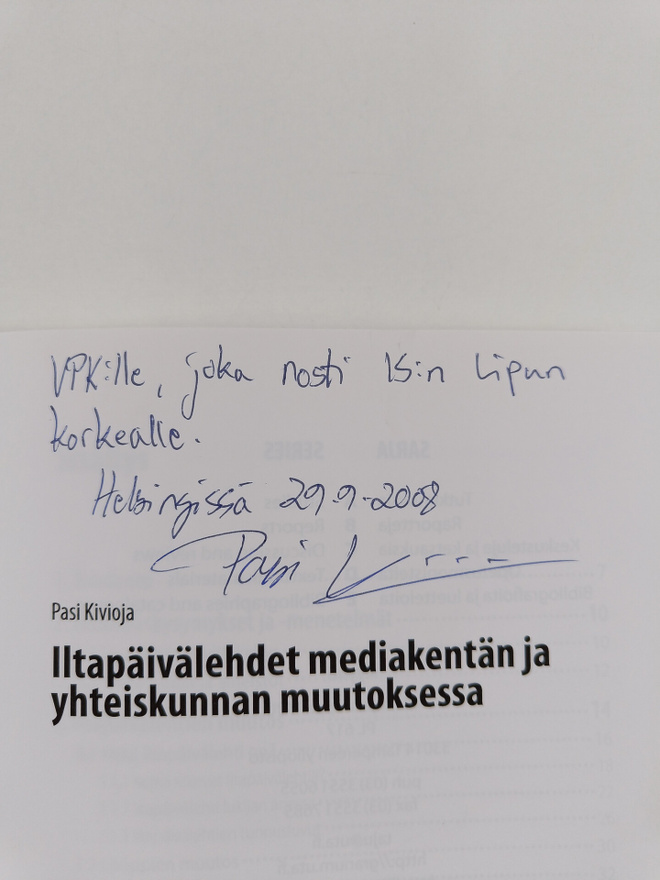 VPK:lle, joka nosti IS:n lipun
korkealle.
Helsingissä 29.9.2008
Pasi
Pasi Kivioja
Iltapäivälehdet mediakentän ja
yhteiskunnan muutoksessa